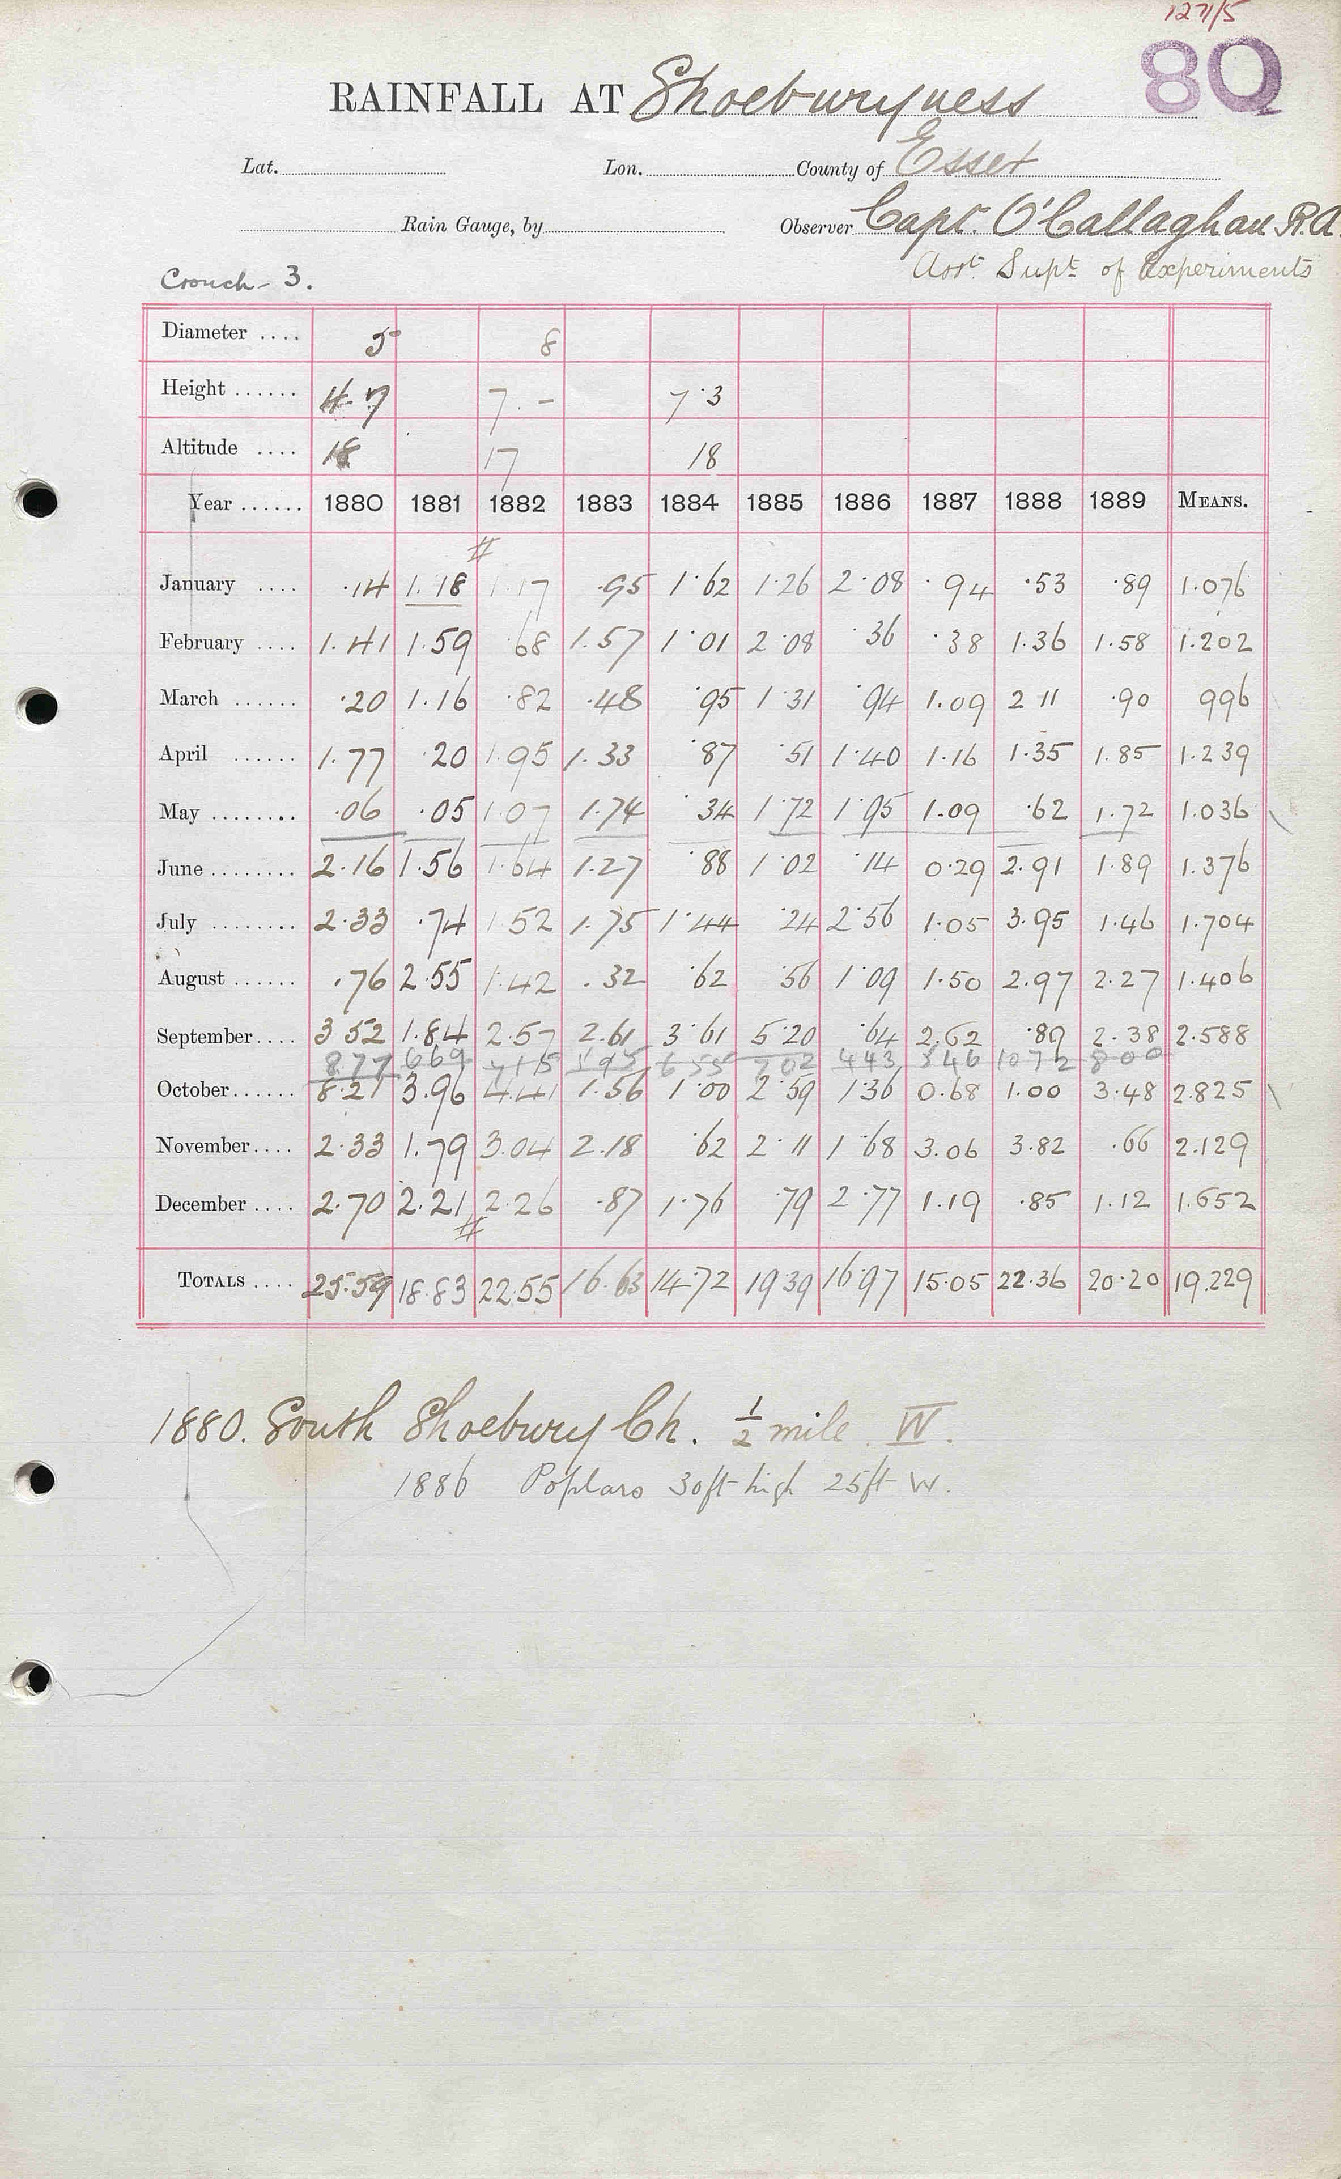 127/5
80
RAINFALL AT Shoeburyness
Lat. Lon. County of Essex
Rain Gauge, by Observer Capt. O'Callaghan R.A.
Asst Supt of Experiments
Crouch - 3.
Diameter .... 5 8
Height ...... 4.7 7.- 7.3
Altitude .... 18 17 18
Year ...... 1880 1881 1882 1883 1884 1885 1886 1887 1888 1889 MEANS.
January .... .14 1.18 1.17 .95 1.62 1.26 2.08 .94 .53 .89 1.076
February .... 1.41 1.59 .68 1.57 1.01 2.08 .36 .38 1.36 1.58 1.202
March ...... .20 1.16 .82 .48 .95 1.31 .94 1.09 2.11 .90 996
April ...... 1.77 .20 1.95 1.33 .87 .51 1.40 1.16 1.35 1.85 1.239
May ........ .06 .05 1.07 1.74 .34 1.72 1.95 1.09 .62 1.72 1.036
June ........ 2.16 1.56 1.64 1.27 .88 1.02 .14 0.29 2.91 1.89 1.376
July ........ 2.33 .74 1.52 1.75 1.44 .24 2.56 1.05 3.95 1.46 1.704
August ...... .76 2.55 1.42 .32 .62 .56 1.09 1.50 2.97 2.27 1.406
September.... 3.52 1.84 2.57 2.61 3.61 5.20 .64 2.62 .89 2.38 2.588
877 669 715 595 655 702 443 546 1072 800
October...... 8.21 3.96 4.41 1.56 1.00 2.59 1.36 0.68 1.00 3.48 2.825
November.... 2.33 1.79 3.04 2.18 .62 2.11 1.68 3.06 3.82 .66 2.129
December .... 2.70 2.21 2.26 .87 1.76 .79 2.77 1.19 .85 1.12 1.652
TOTALS .... 25.59 18.83 22.55 16.63 14.72 19.39 16.97 15.05 22.36 20.20 19.229
1880. South Shoebury Ch. 1/2 mile W.
1886 Poplars 30ft high 25ft W.